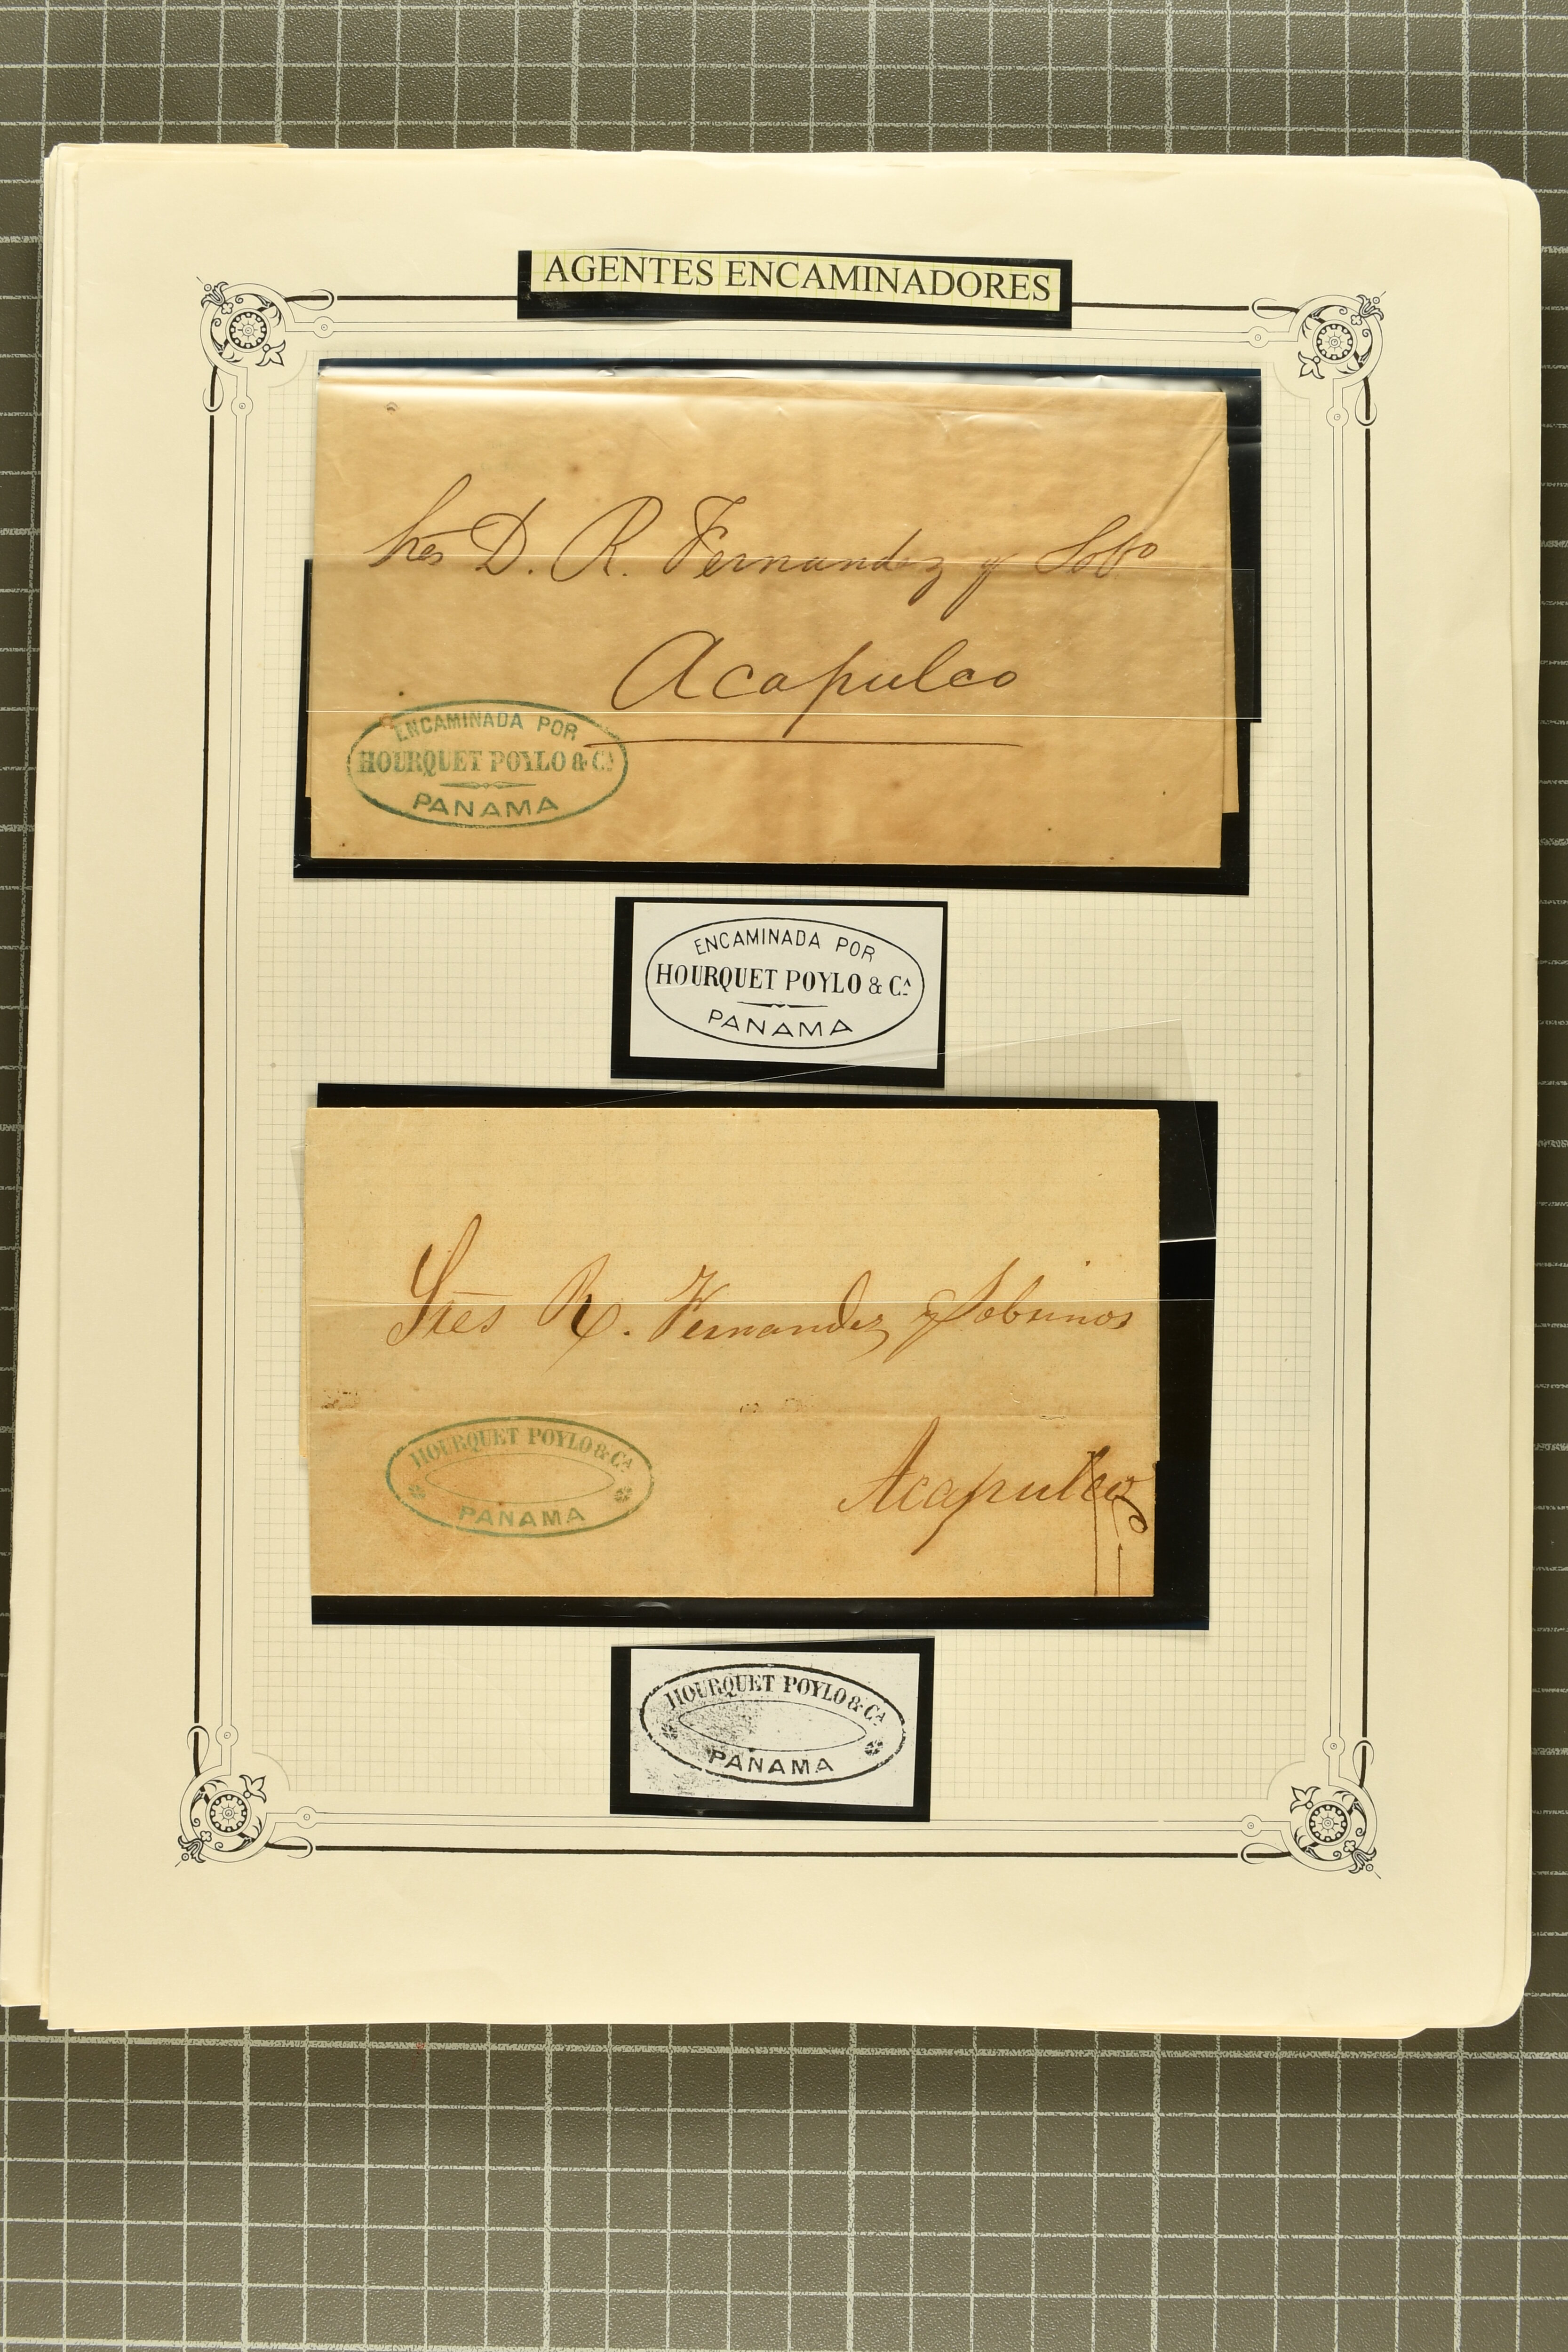 AGENTES ENCAMINADORES
Sres D. R. Fernandez y Sobo
Acapulco
ENCAMINADA POR
HOURQUET POYLO & CA
PANAMA
ENCAMINADA POR
HOURQUET POYLO & CA
PANAMA
Sres R. Fernandez y Sobrinos
Acapulco
HOURQUET POYLO & CA
PANAMA
HOURQUET POYLO & CA
PANAMA